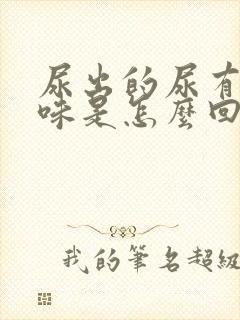 尿出的尿有
味是怎麼回
我的筆名超級